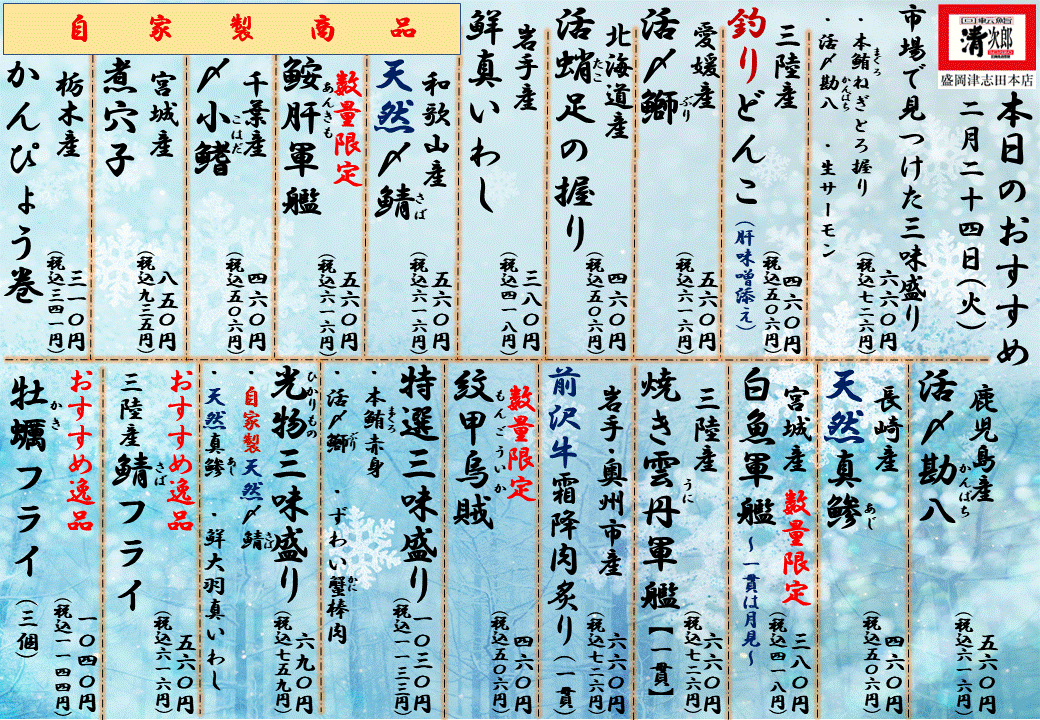 回転鮨
清次郎
盛岡津志田本店
本日のおすすめ
二月二十四日(火)
市場で見つけた三味盛り
・本鮪ねぎとろ握り
まぐろ
・活〆勘八
かんぱち
・生サーモン
六六〇円
(税込七二六円)
三陸産
釣りどんこ
(肝味噌添え)
四六〇円
(税込五〇六円)
愛媛産
活〆鰤
ぶり
五六〇円
(税込六一六円)
北海道産
活蛸足の握り
たこ
四六〇円
(税込五〇六円)
岩手産
鮮真いわし
三八〇円
(税込四一八円)
自家製商品
和歌山産
天然〆鯖
さば
五六〇円
(税込六一六円)
数量限定
鮟肝軍艦
あんきも
五六〇円
(税込六一六円)
千葉産
〆小鰭
こはだ
四六〇円
(税込五〇六円)
宮城産
煮穴子
八五〇円
(税込九三五円)
栃木産
かんぴょう巻
三一〇円
(税込三四一円)
鹿児島産
活〆勘八
かんぱち
五六〇円
(税込六一六円)
長崎産
天然真鯵
あじ
四六〇円
(税込五〇六円)
宮城産
数量限定
白魚軍艦
~一貫は月見~
三八〇円
(税込四一八円)
三陸産
焼き雲丹軍艦【一貫】
うに
六六〇円
(税込七二六円)
岩手・奥州市産
前沢牛霜降肉炙り(一貫)
六六〇円
(税込七二六円)
数量限定
紋甲烏賊
もんごういか
四六〇円
(税込五〇六円)
特選三味盛り
・本鮪赤身
まぐろ
・活〆鰤
ぶり
・ずわい蟹棒肉
かに
一〇三〇円
(税込一一三三円)
光物三味盛り
ひかりもの
・自家製天然〆鯖
さば
・天然真鯵
あじ
・鮮大羽真いわし
六九〇円
(税込七五九円)
おすすめ逸品
三陸産鯖フライ
さば
五六〇円
(税込六一六円)
おすすめ逸品
牡蠣フライ(三個)
かき
一〇四〇円
(税込一一四四円)